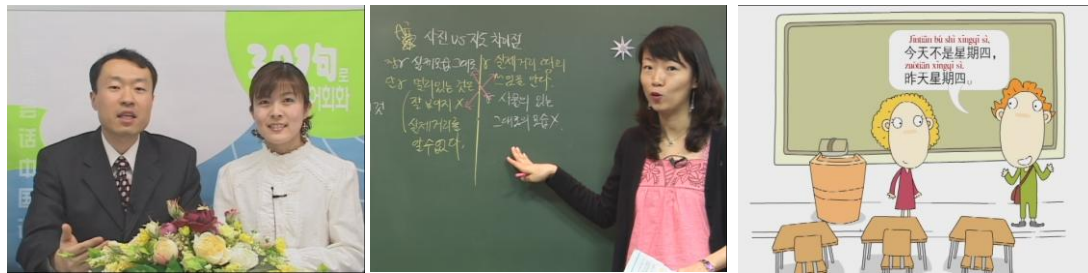 301句로
어회화
话
中
国
사진 vs 지도 차이점
실제모습 그대로
멀리있는 것은
잘 보이지 X
실제거리를
알수없다.
실제거리
사물이 있는
그대로의 모습 X
Jīntiān bú shì xīngqī sì,
今天不是星期四，
zuótiān xīngqī sì.
昨天星期四。